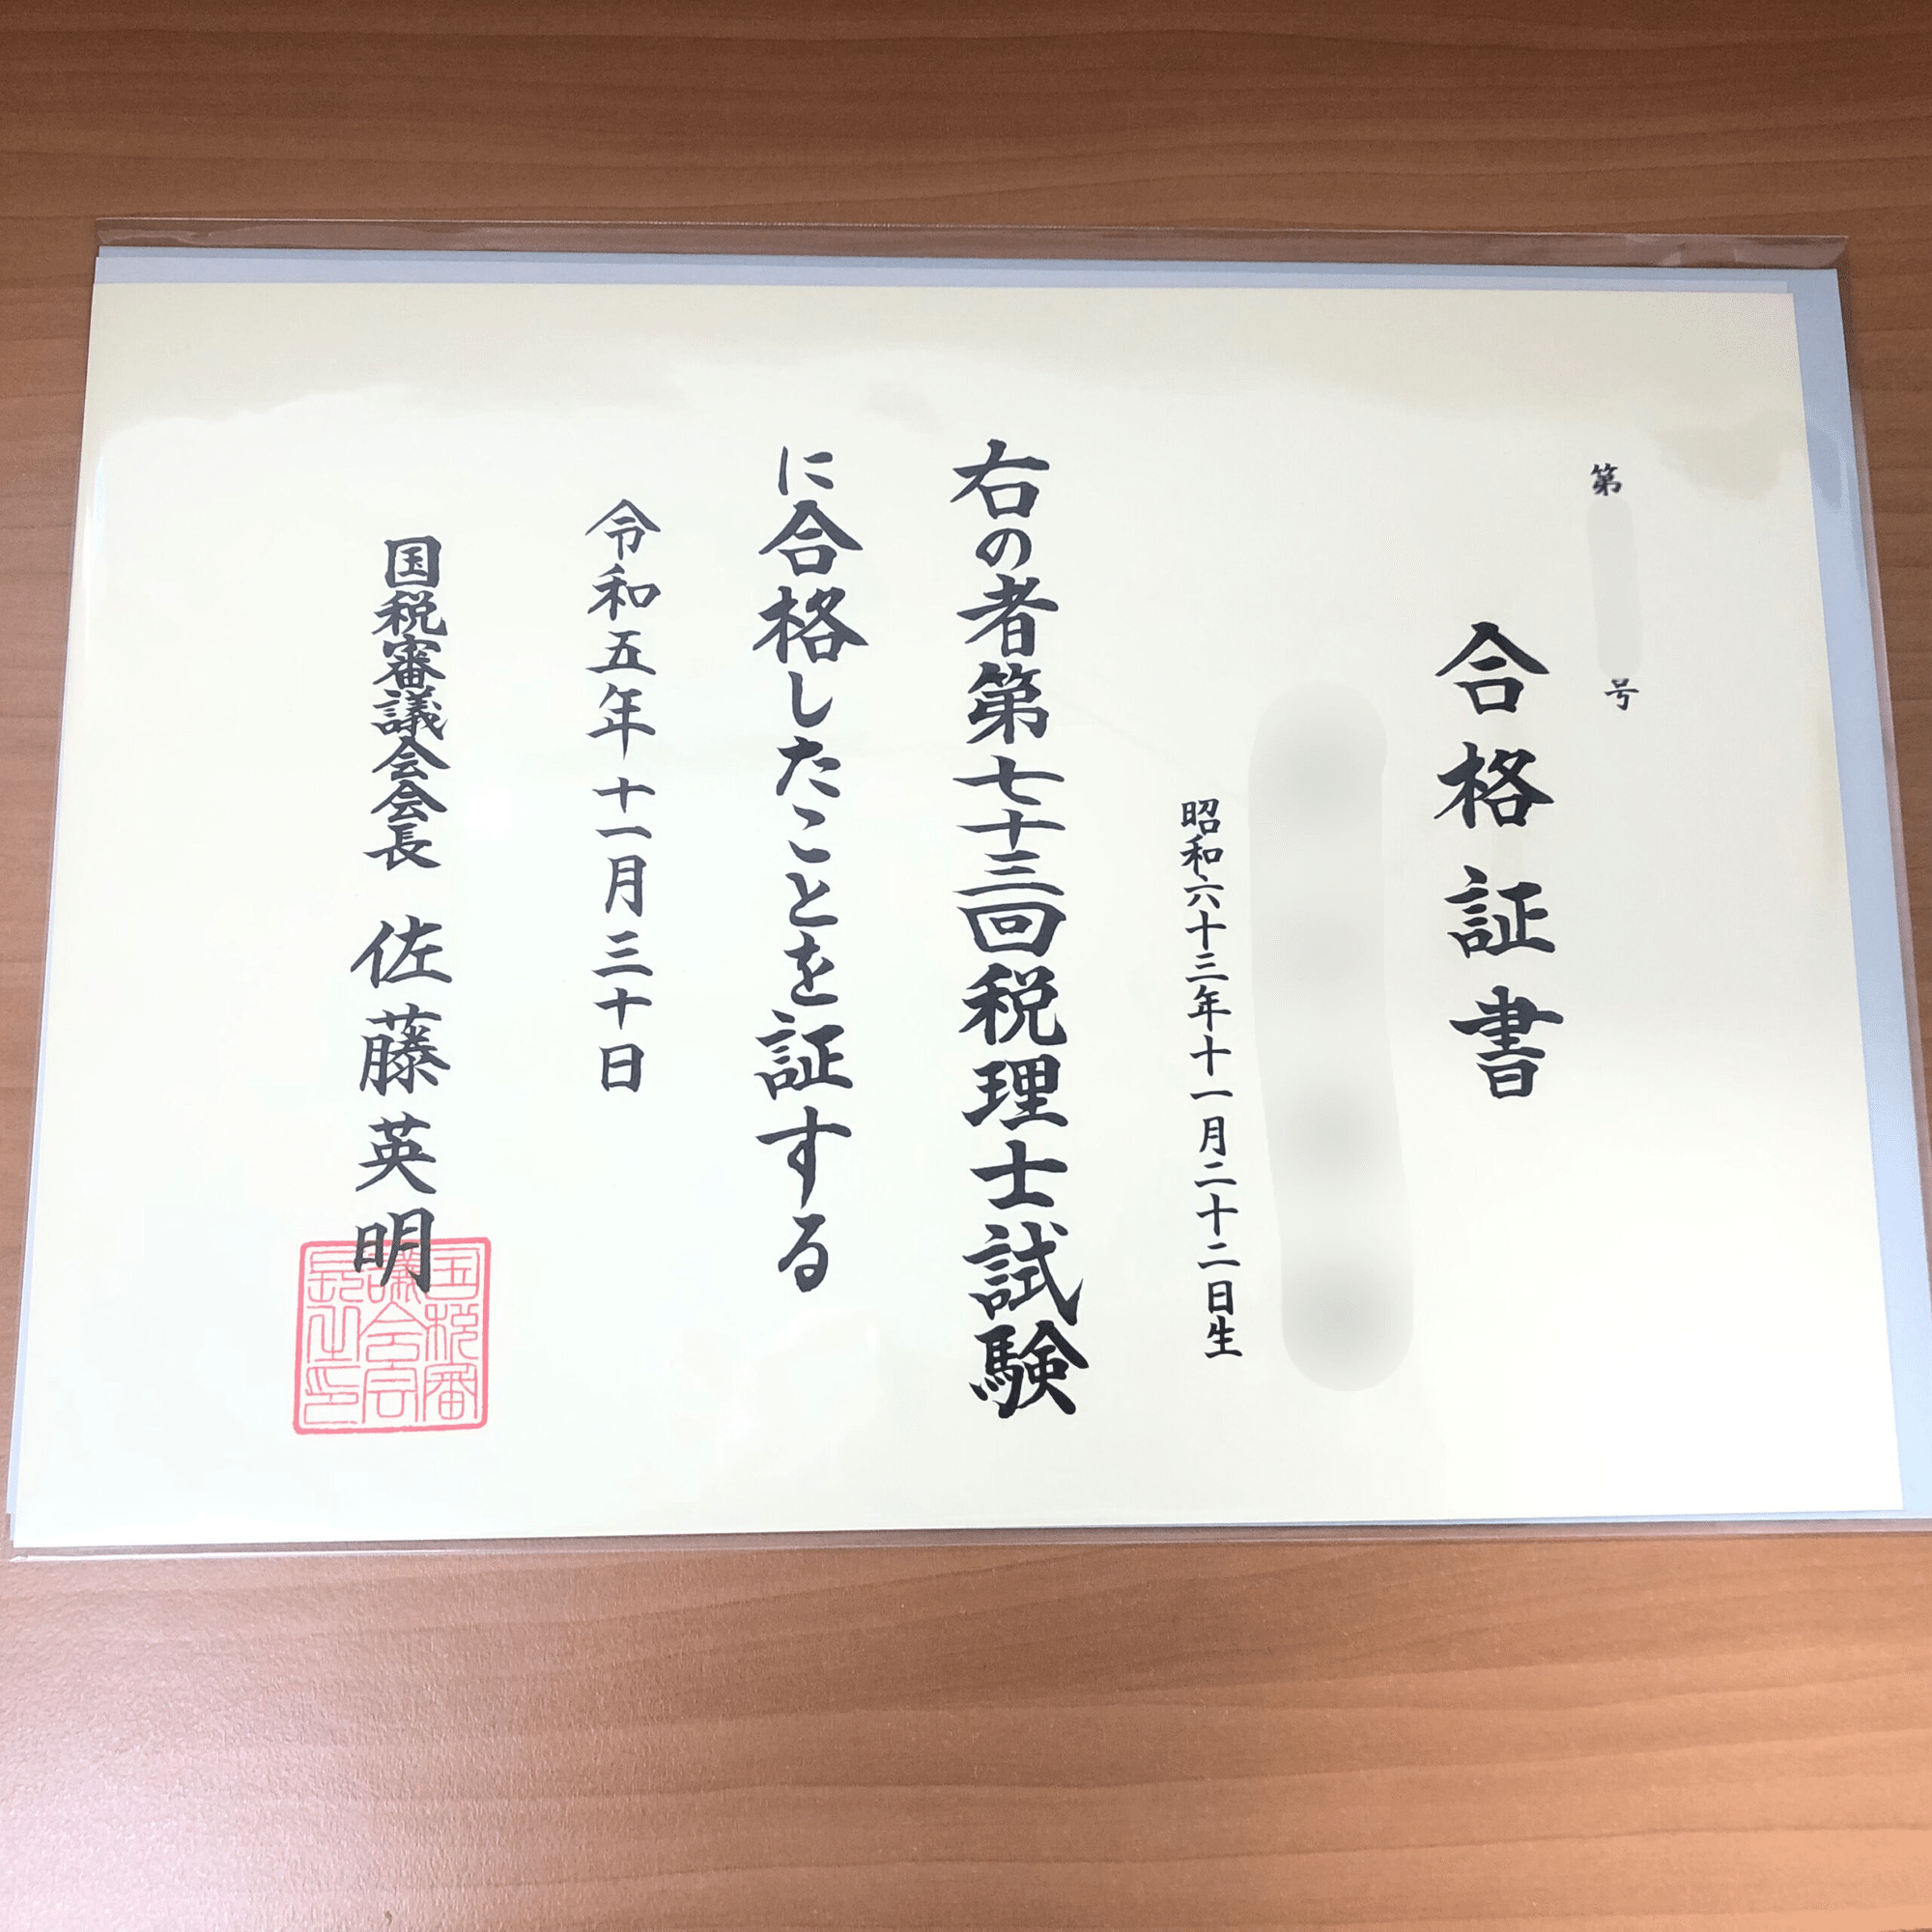 第 号
合格証書
昭和六十三年十一月二十二日生
右の者第七十三回税理士試験
に合格したことを証する
令和五年十一月三十日
国税審議会会長 佐藤英明
国税審議会会長之印